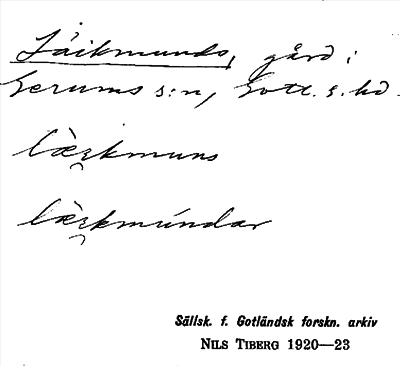 Läikmunds, gård i
Gerums s:n, Gotl. s. hd.
lὰi̯kmuns
lὰi̯kmúndar
Sällsk. f. Gotländsk forskn. arkiv
NILS TIBERG 1920—23